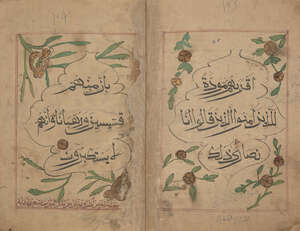 اقربهم مودة
للذين امنوا الذين قالوا انا
نصارى ذلك
بان منهم
قسيسين ورهبانا وانهم
لا يستكبرون